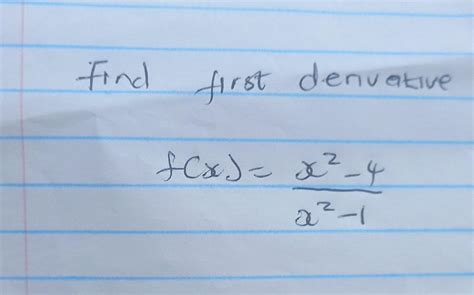 Find first derivative
f(x) = x² - 4 / x² - 1